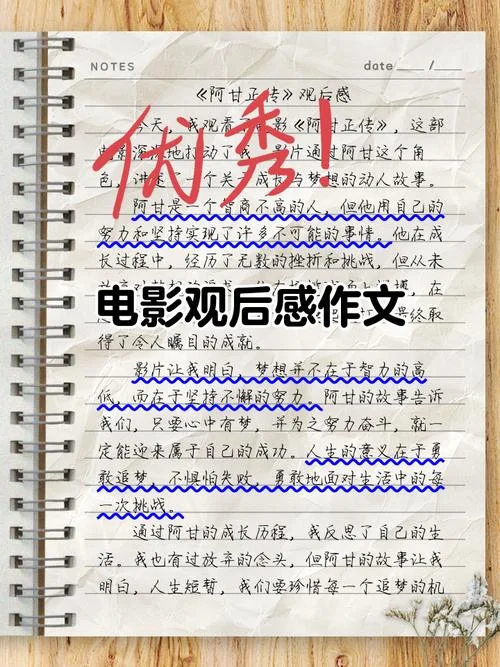 NOTES
date ___ / ___
《阿甘正传》观后感
今天，我观看了电影《阿甘正传》，这部
电影深深地打动了我。影片通过阿甘这个角
色，讲述了一个关于成长与梦想的动人故事。
优秀！
阿甘是一个智商不高的人，但他用自己的
努力和坚持实现了许多不可能的事情。他在成
长过程中，经历了无数的挫折和挑战，但从未
在
电影观后感作文
终取
得了令人瞩目的成就。
影片让我明白，梦想并不在于智力的高
低，而在于坚持不懈的努力。阿甘的故事告诉
我们，只要心中有梦，并为之努力奋斗，就一
定能迎来属于自己的成功。人生的意义在于勇
敢追梦，不惧怕失败，勇敢地面对生活中的每
一次挑战。
通过阿甘的成长历程，我反思了自己的生
活。我也有过放弃的念头，但阿甘的故事让我
明白，人生短暂，我们要珍惜每一个追梦的机